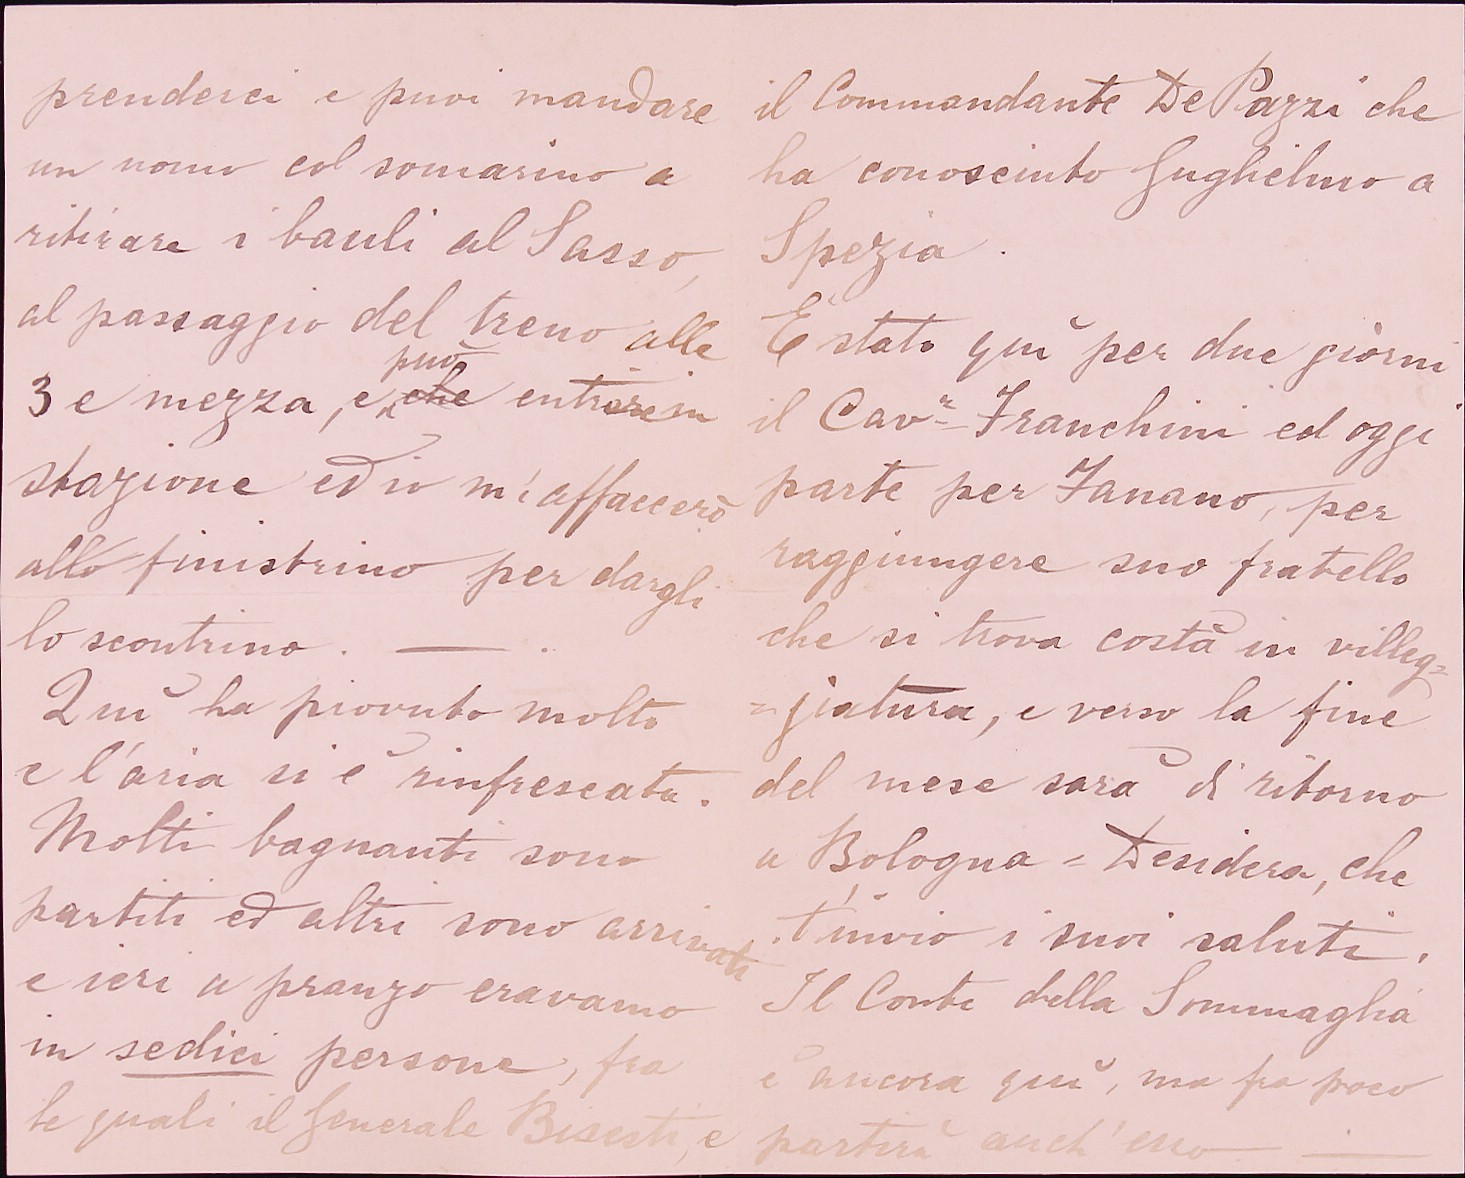 prenderci e puoi mandare
un uomo col somarino a
ritirare i bauli al Sasso,
al passaggio del treno alle
può
3 e mezza, e che entrare in
stazione ed io m'affaccerò
allo finistrino per dargli
lo scontrino. — .
Quì ha piovuto molto
e l'aria si è rinfrescata.
Molti bagnanti sono
partiti ed altri sono arrivati
e ieri a pranzo eravamo
in sedici persone, fra
le quali il Generale Bisesti, e
il Commandante De Pazzi che
ha conosciuto Guglielmo a
Spezia.
È stato quì per due giorni
il Cavr. Franchini ed oggi
parte per Fanano, per
raggiungere suo fratello
che si trova costà in villeg=
=giatura, e verso la fine
del mese sarà di ritorno
a Bologna = Desidera, che
t'invio i suoi saluti.
Il Conte della Sommaglia
è ancora quì, ma fra poco
partirà anch'esso —